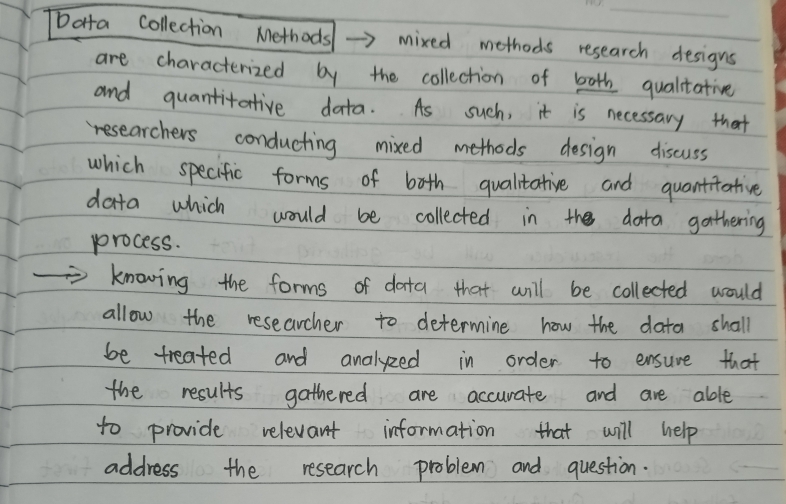 Data Collection Methods → mixed methods research designs
are characterized by the collection of both qualitative
and quantitative data. As such, it is necessary that
researchers conducting mixed methods design discuss
which specific forms of both qualitative and quantitative
data which would be collected in the data gathering
process.
→ knowing the forms of data that will be collected would
allow the researcher to determine how the data shall
be treated and analyzed in order to ensure that
the results gathered are accurate and are able
to provide relevant information that will help
address the research problem and question.